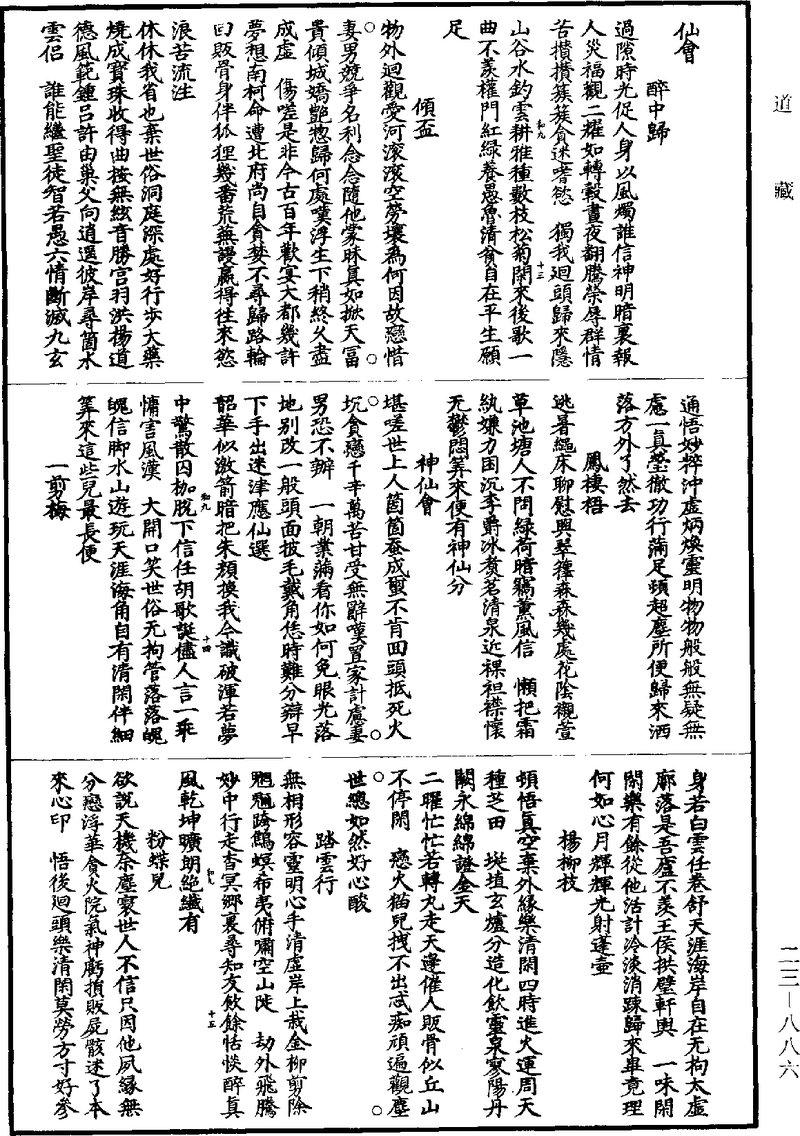 道藏
仙會
醉中歸
過隙時光促人身以風燭誰信神明暗裏報
人災福觀二耀如轉轂晝夜翻騰榮辱群情
苦攢攢簇簇貪迷嗜慾　獨我迴頭歸來隱
山谷水釣雲耕雅種數枝松菊閑來後歌一
曲不羨權門紅綠養愚魯清貧自在平生願
足
傾盃
物外迴觀愛河滚滚空勞壤為何因故戀惜
妻男競爭名利念念隨他蒙昧真如掀天冨
貴傾城嬌艷惣歸何處嘆浮生下稍終久盡
成虛　傷嗟是非今古百年歡宴大都幾許
夢想南柯命遭北府尚自貪婪不尋歸路輪
回販骨身伴狐狸幾番荒蕪謾贏得往來慾
浪苦流注
休休我省也棄世俗洞庭深處好行步大藥
燒成寶珠收得曲按無絃音勝宫羽洪揚道
德風範鍾呂許由巢父向逍遥彼岸尋箇水
雲侣　誰能繼聖徒智若愚六情斷滅九玄
通悟妙粹沖虛炳煥靈明物物般般無疑無
慮一真瑩徹功行滿足頓超塵所便歸來洒
落方外了然去
鳳棲梧
逃暑繩床聊慰興翠篁森森幾處花陰襯萱
草池塘人不問綠荷暗竊薰風信　懶把霜
紈嫌力困沉李爵冰煑茗清泉近裸袒襟懷
无鬱悶筭來便有神仙分
神仙會
堪嗟世上人箇箇蚕成蠒不肯回頭抵死火
坑貪戀千辛萬苦甘受無辭嘆置家計慮妻
男恐不辦　一朝業滿看你如何免眼光落
地别改一般頭面披毛戴角恁時難分辯早
下手出迷津應仙選
韶華似激箭暗把朱顔換我今識破渾若夢
中驚散囚枷脫下信任胡歌誕儘人言一乖
慵害風漢　大開口笑世俗无拘管落落魄
魄信脚水山遊玩天涯海角自有清閑伴細
筭來這些兒最長便
一剪梅
身若白雲任卷舒天涯海岸自在无拘太虛
廓落是吾廬不羨王侯拱璧軒輿　一味閑
閑樂有餘從他活計冷淡消踈歸來畢竟理
何如心月輝輝光射蓬壺
楊柳枝
頓悟真空棄外緣樂清閑四時進火運周天
種芝田　埏埴玄爐分造化飲靈泉寥陽丹
闕永綿綿證金天
二曜忙忙若轉丸走天邊催人販骨似丘山
不停閑　戀火猫兒拽不出忒痴頑遍觀塵
世總如然好心酸
踏雲行
無相形容靈明心手清虛岸上栽金柳剪除
魍魎跨鵾螟希夷俯嘯空山陡　劫外飛騰
妙中行走杳冥鄉裏尋知友飲餘恬惔醉真
風乾坤曠朗絕纖有
粉蝶兒
欲說天機柰塵寰世人不信只因他夙緣無
分戀浮華貪火院氣神虧損販屍骸迷了本
來心印　悟後迴頭樂清閑莫勞方寸好參
二三—八八六